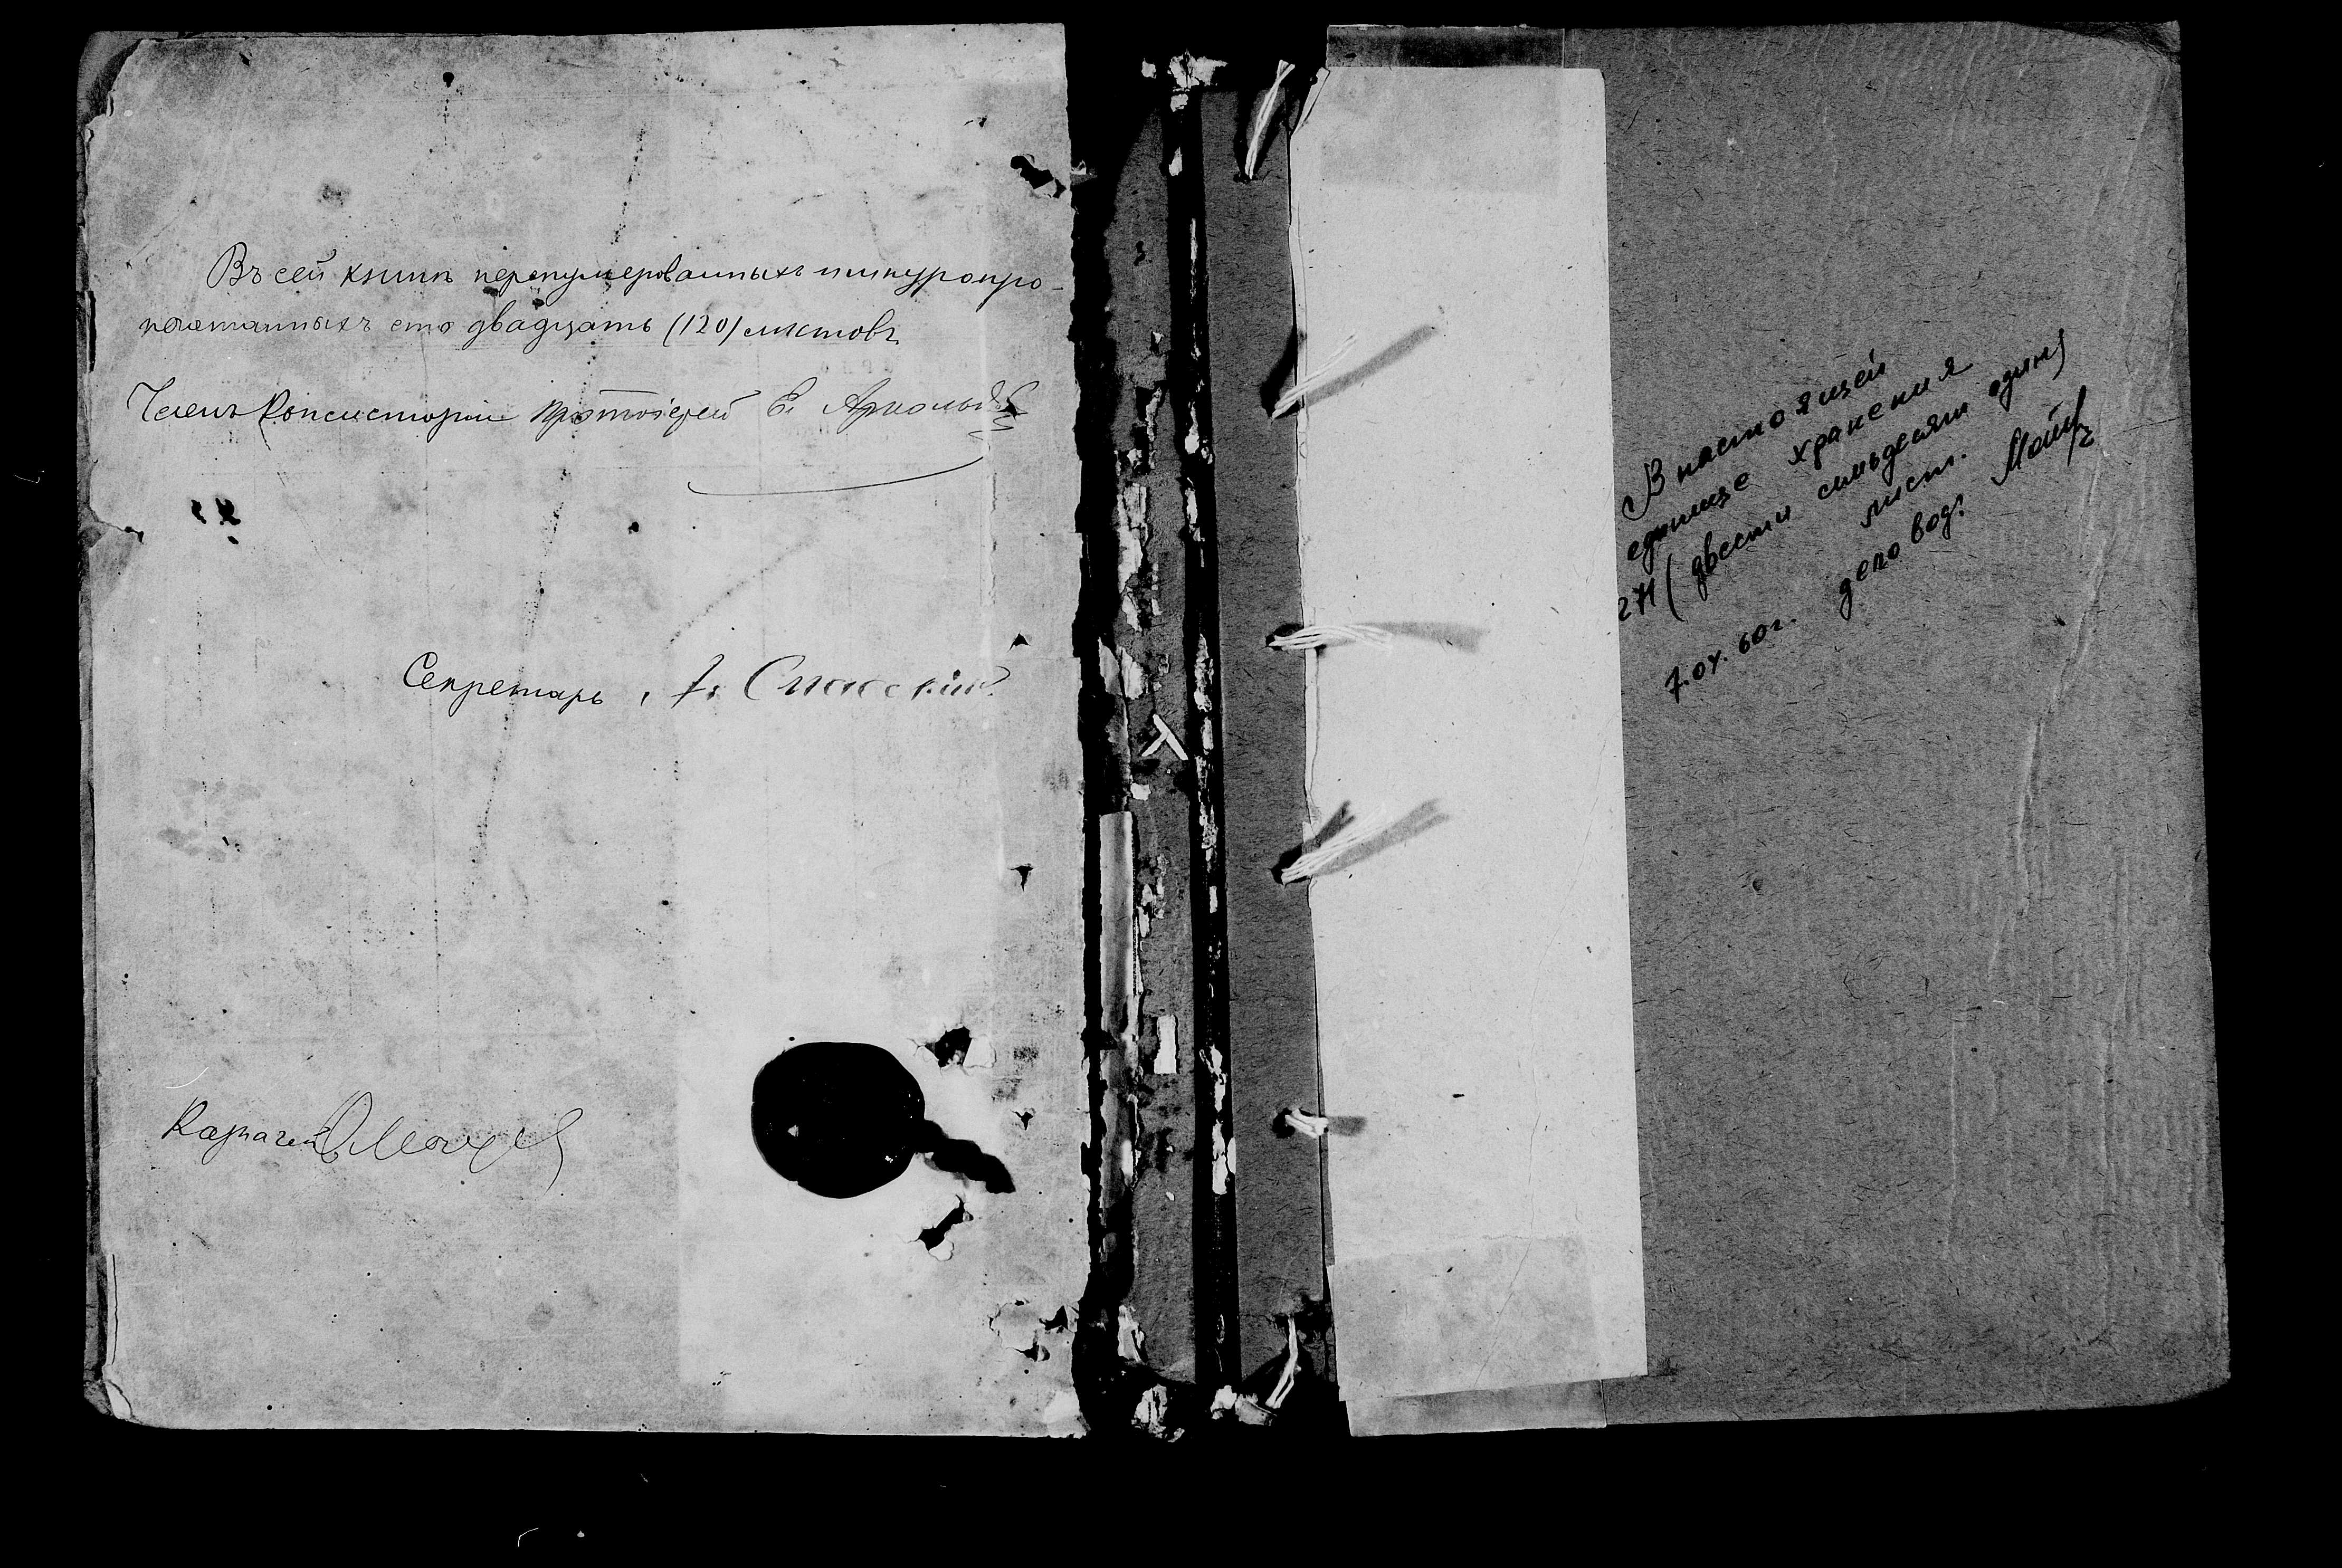 Въ сей книгѣ перенумерованныхъ и шнуропро-
печатанныхъ сто двадцать (120) листовъ
Членъ Консисторіи протоіерей Е. Арнольдовъ
Секретарь, А. Спасскій
Казначей
В настоящей
единице хранения
271 (двести семьдесят один)
лист.
7.04.60г. деловод: